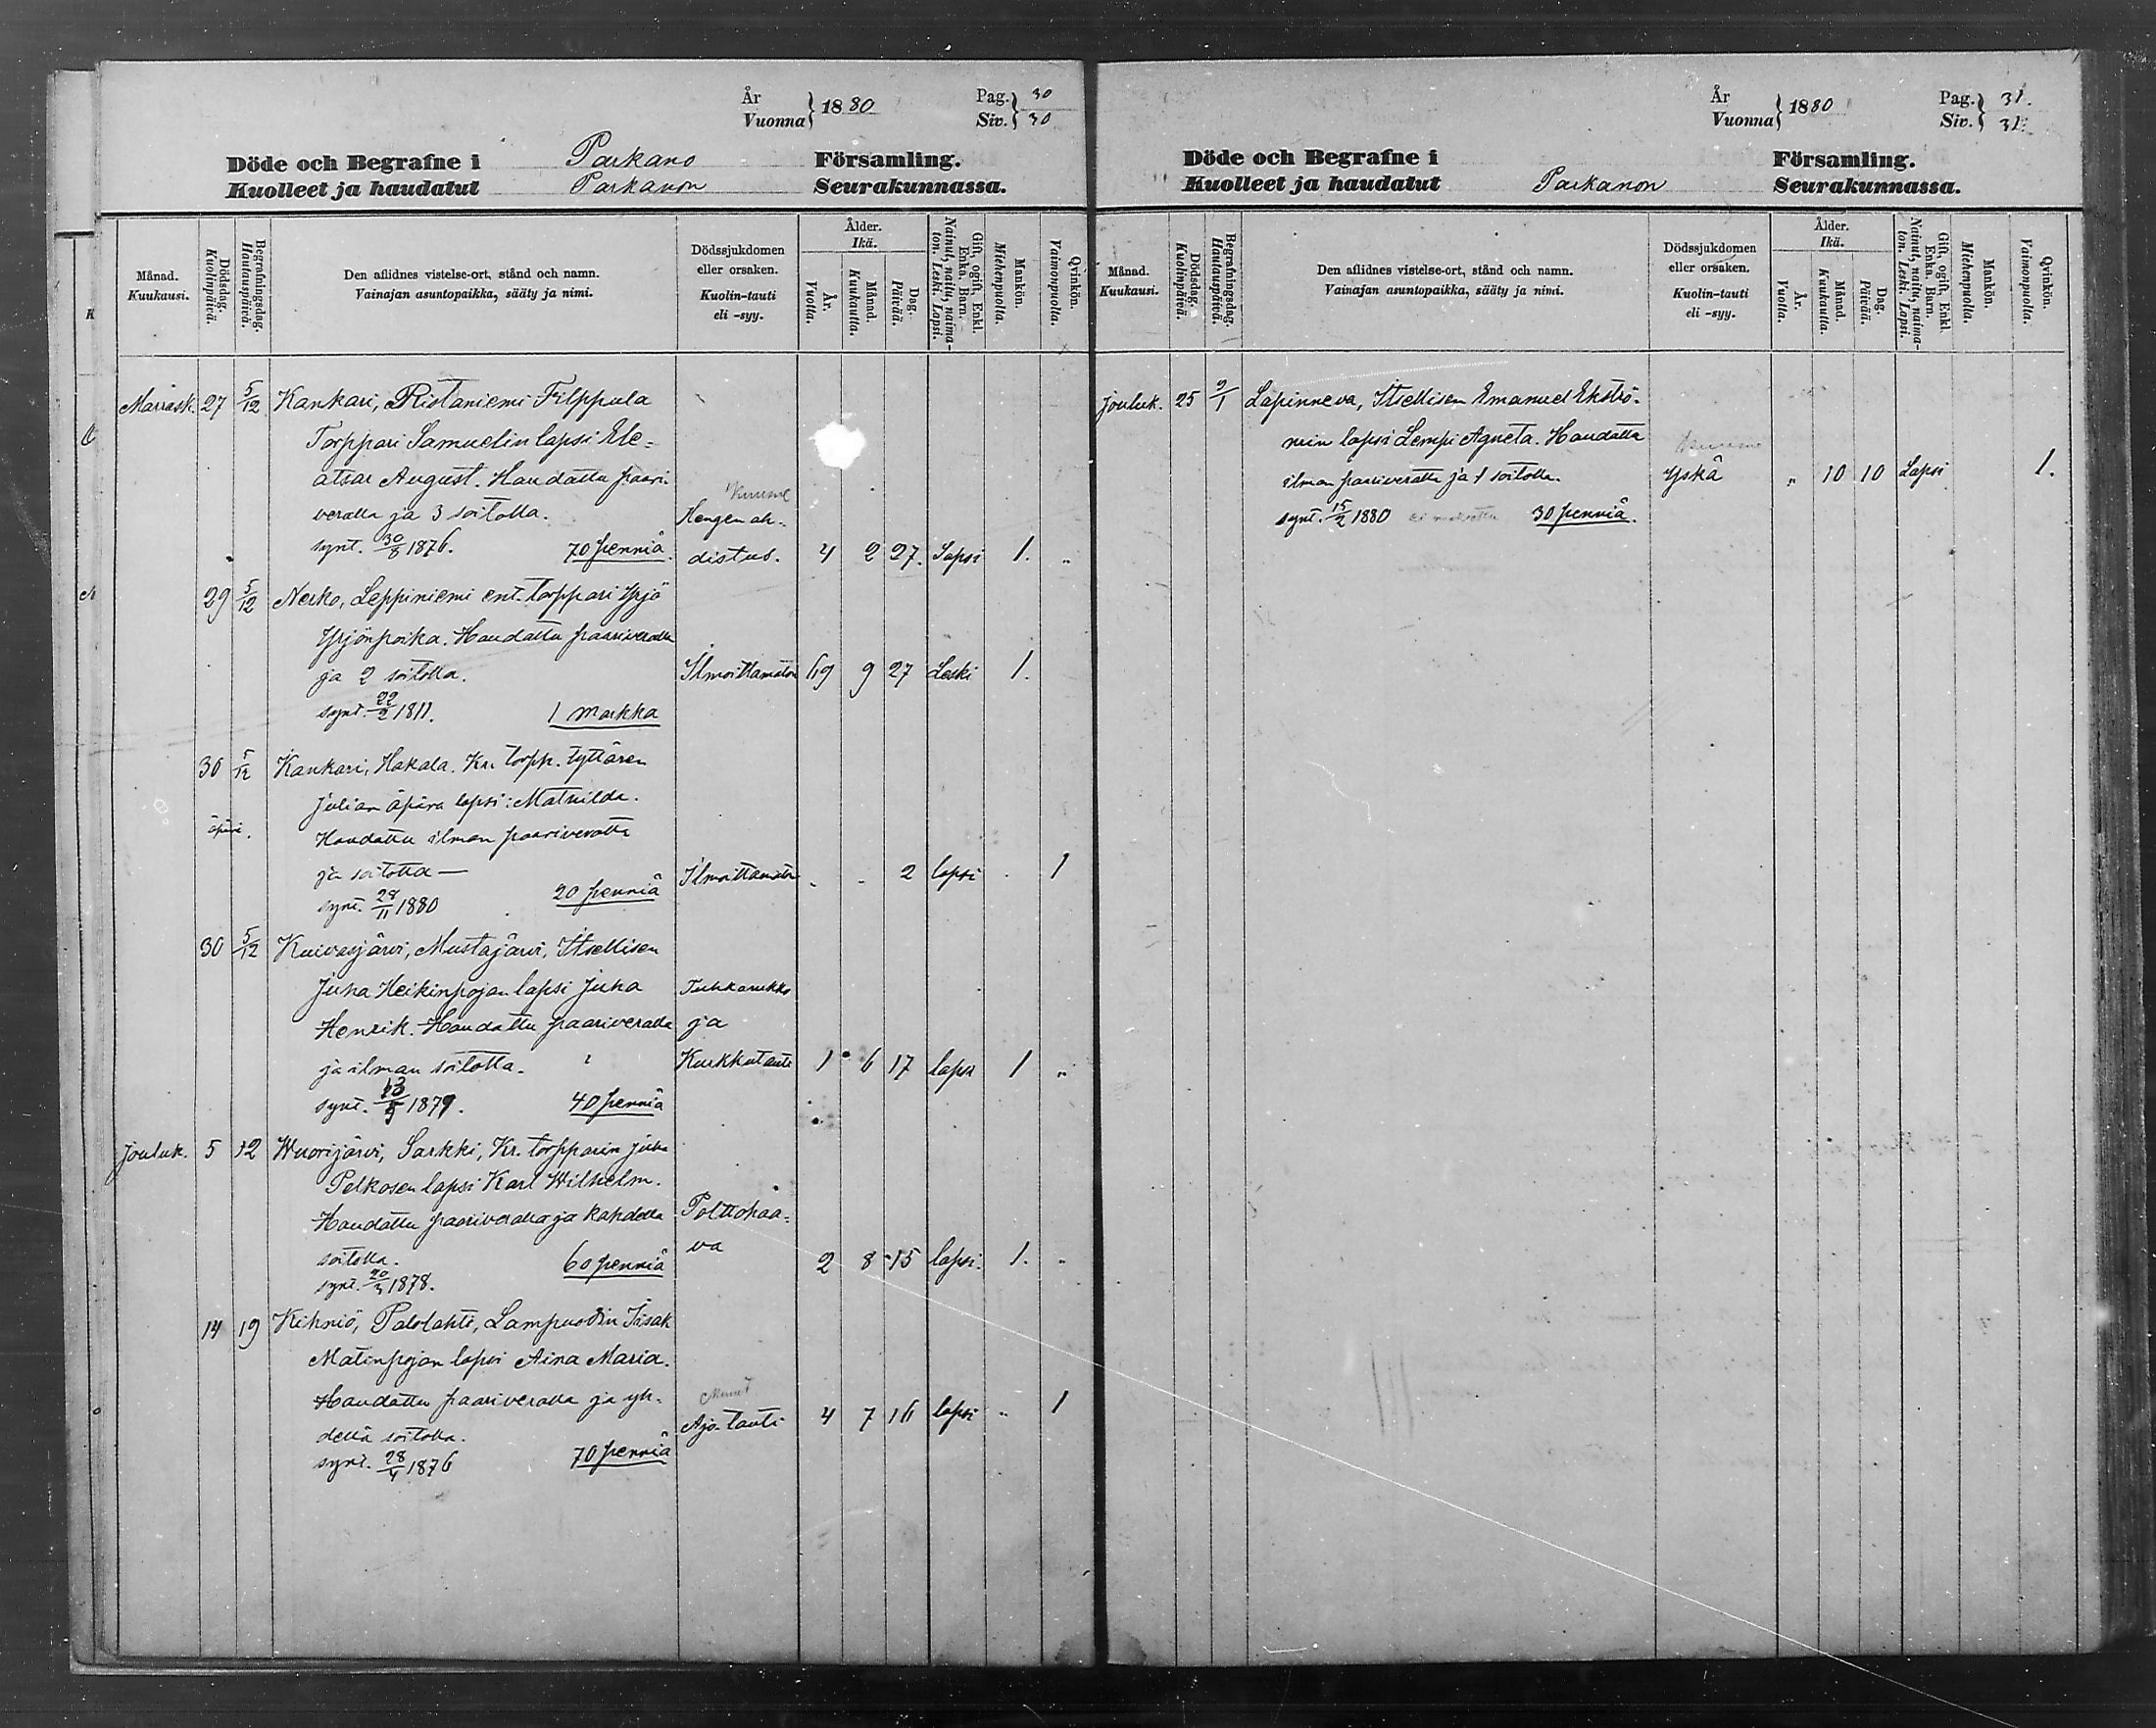 År Vuonna } 1880 Pag. Siv. } 30 30
Döde och Begrafne i Parkano Församling.
Kuolleet ja haudatut Parkanon Seurakunnassa.
Månad. Kuukausi.
Dödsdag. Kuolinpäivä.
Begrafningsdag. Hautauspäivä.
Den aflidnes vistelse-ort, stånd och namn.
Vainajan asuntopaikka, sääty ja nimi.
Dödssjukdomen
eller orsaken.
Kuolin-tauti
eli -syy.
Ålder.
Ikä.
År. Vuotta.
Månad. Kuukautta.
Dag. Päivää.
Gift, ogift, Enkl. Enka. Barn.
Nainut, naitu, naimaton. Leski. Lapsi.
Mankön. Miehenpuolta.
Qvinkön. Vaimonpuolta.
Marrask. 27 5/12 Kankari, Ristaniemi Filppula
Torppari Samuelin lapsi Ele-
atsar August. Haudattu paari-
veralla ja 3 soitolla. Kuume Hengenah-
synt. 30/8 1876. 70 penniä. distus. 4 2 27. Lapsi 1. "
29 5/12 Nerko, Leppiniemi ent. torppari Yrjö
Yrjönpoika. Haudattu paariveralla
ja 2 soitolla. Ilmoittamaton 69 9 27 Leski 1.
synt. 22/2 1811. 1 markka
30 5/12 Kankari, Hakala. Kr. torpp. tyttären
Julian äpärä lapsi: Mathilda.
äpärä. Haudattu ilman paariveratta
ja soitotta — Ilmoittamatta " " 2 lapsi 1
synt. 28/11 1880 20 penniä
30 5/12 Kuivasjärvi, Mustajärvi, Itsellisen
Juha Heikinpojan lapsi Juha Tuhkarukko
Henrik. Haudattu paariveralla ja
ja ilman soitotta. Kurkkutauti 1 6 17 lapsi 1 "
synt. 13/5 1879. 40 penniä
Jouluk. 5 12 Wuorijärvi, Sarkki, Kr. torpparin Juha
Pelkosen lapsi Karl Wilhelm.
Haudattu paariveralla ja kahdella Polttohaa-
soitolla. 60 penniä va 2 8 15 lapsi. 1. "
synt. 20/3 1878.
14 19 Kihniö, Palolahti, Lampuodin Iisak
Matinpojan lapsi Aina Maria.
Haudattu paariveralla ja yh-
dellä soitolla. Ajo-tauti 4 7 16 lapsi " 1
synt. 28/4 1876 70 penniä
År Vuonna } 1880 Pag. Siv. } 31. 31.
Döde och Begrafne i Församling.
Kuolleet ja haudatut Parkanon Seurakunnassa.
Månad. Kuukausi.
Dödsdag. Kuolinpäivä.
Begrafningsdag. Hautauspäivä.
Den aflidnes vistelse-ort, stånd och namn.
Vainajan asuntopaikka, sääty ja nimi.
Dödssjukdomen
eller orsaken.
Kuolin-tauti
eli -syy.
Ålder.
Ikä.
År. Vuotta.
Månad. Kuukautta.
Dag. Päivää.
Gift, ogift, Enkl. Enka. Barn.
Nainut, naitu, naimaton. Leski. Lapsi.
Mankön. Miehenpuolta.
Qvinkön. Vaimonpuolta.
Jouluk. 25 9/1 Lapinneva, Itsellisen Emanuel Ekströ-
min lapsi Lempi Agneta. Haudattu
ilman paariveratta ja 1 soitolla. Yskä " 10 10 Lapsi 1.
synt. 15/2 1880 30 penniä.